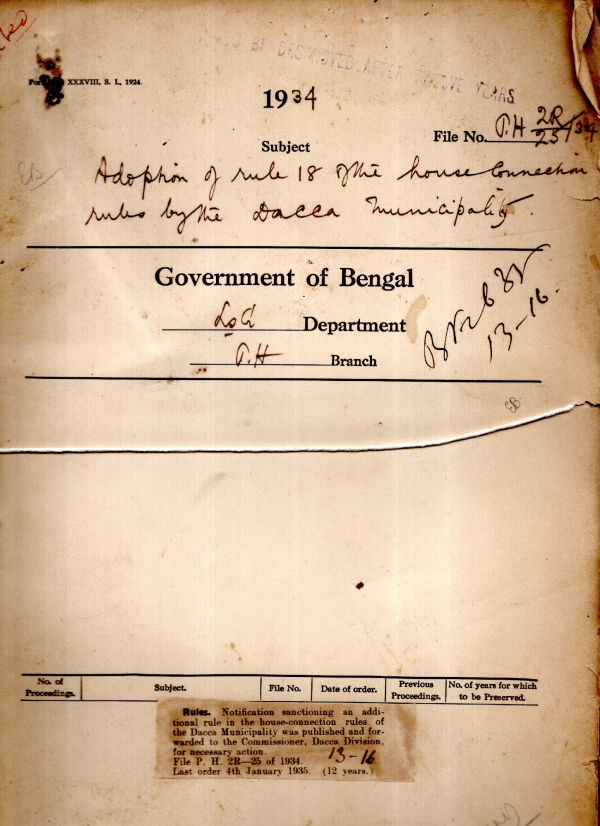 XXXVIII, S. I., 1924.
TO BE DESTROYED AFTER TWELVE YEARS
1934
File No. P.H 2R/25/34
Subject
Adoption of rule 18 of the house connection
rules by the Dacca Municipality.
Government of Bengal
LSG Department
P.H Branch
13-16.
EB
No. of Proceedings. Subject. File No. Date of order. Previous Proceedings. No. of years for which to be Preserved.
Rules. Notification sanctioning an addi-
tional rule in the house-connection rules of
the Dacca Municipality was published and for-
warded to the Commissioner, Dacca Division,
for necessary action. 13-16
File P. H. 2R—25 of 1934.
Last order 4th January 1935. (12 years.)